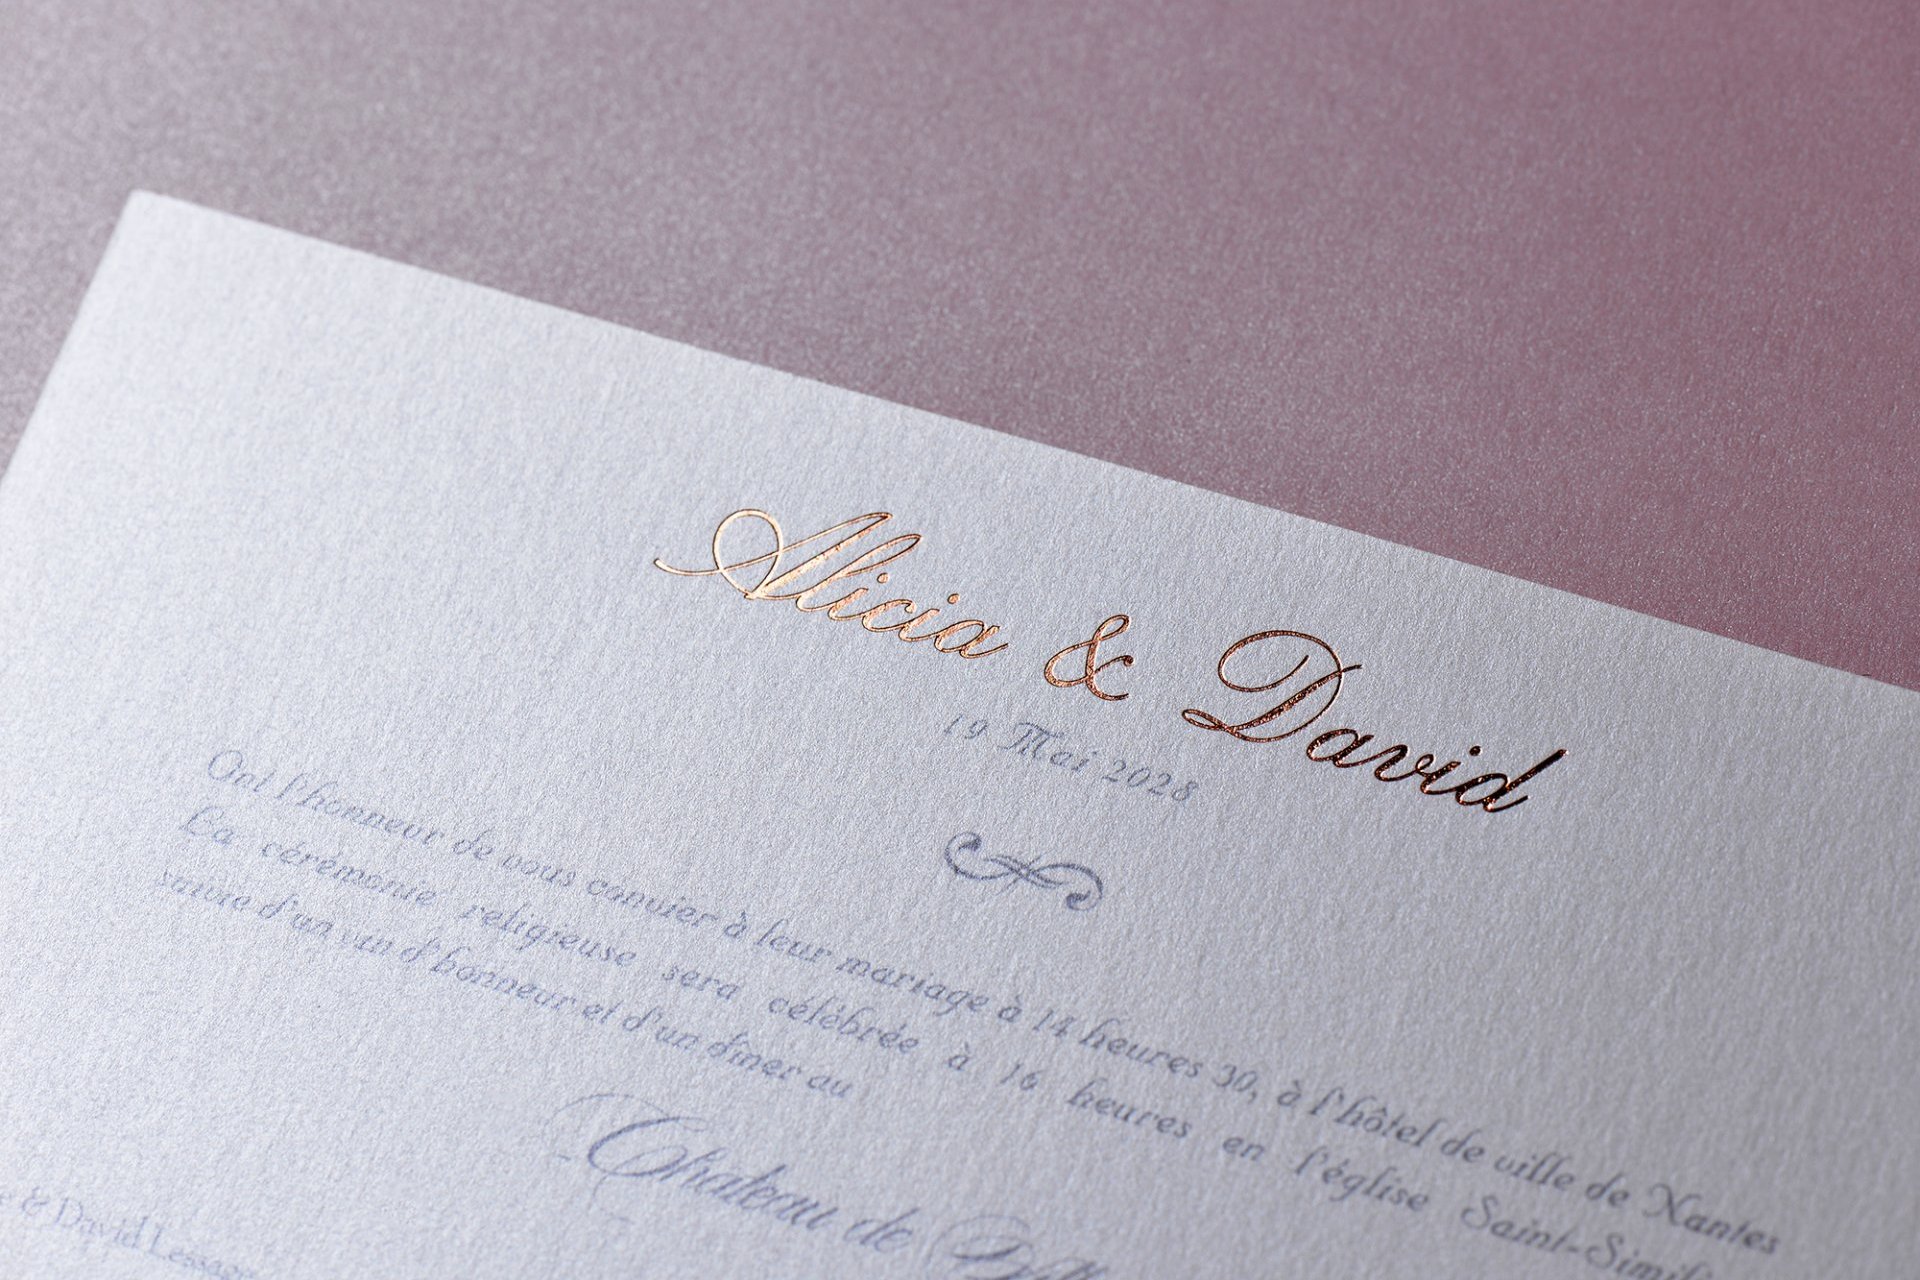 Alicia & David
19 Mai 2028
Ont l'honneur de vous convier à leur mariage à 14 heures 30, à l'hôtel de ville de Nantes
La cérémonie religieuse sera célébrée à 16 heures en l'église
suivie d'un vin d'honneur et d'un dîner au
Chateau de
& David